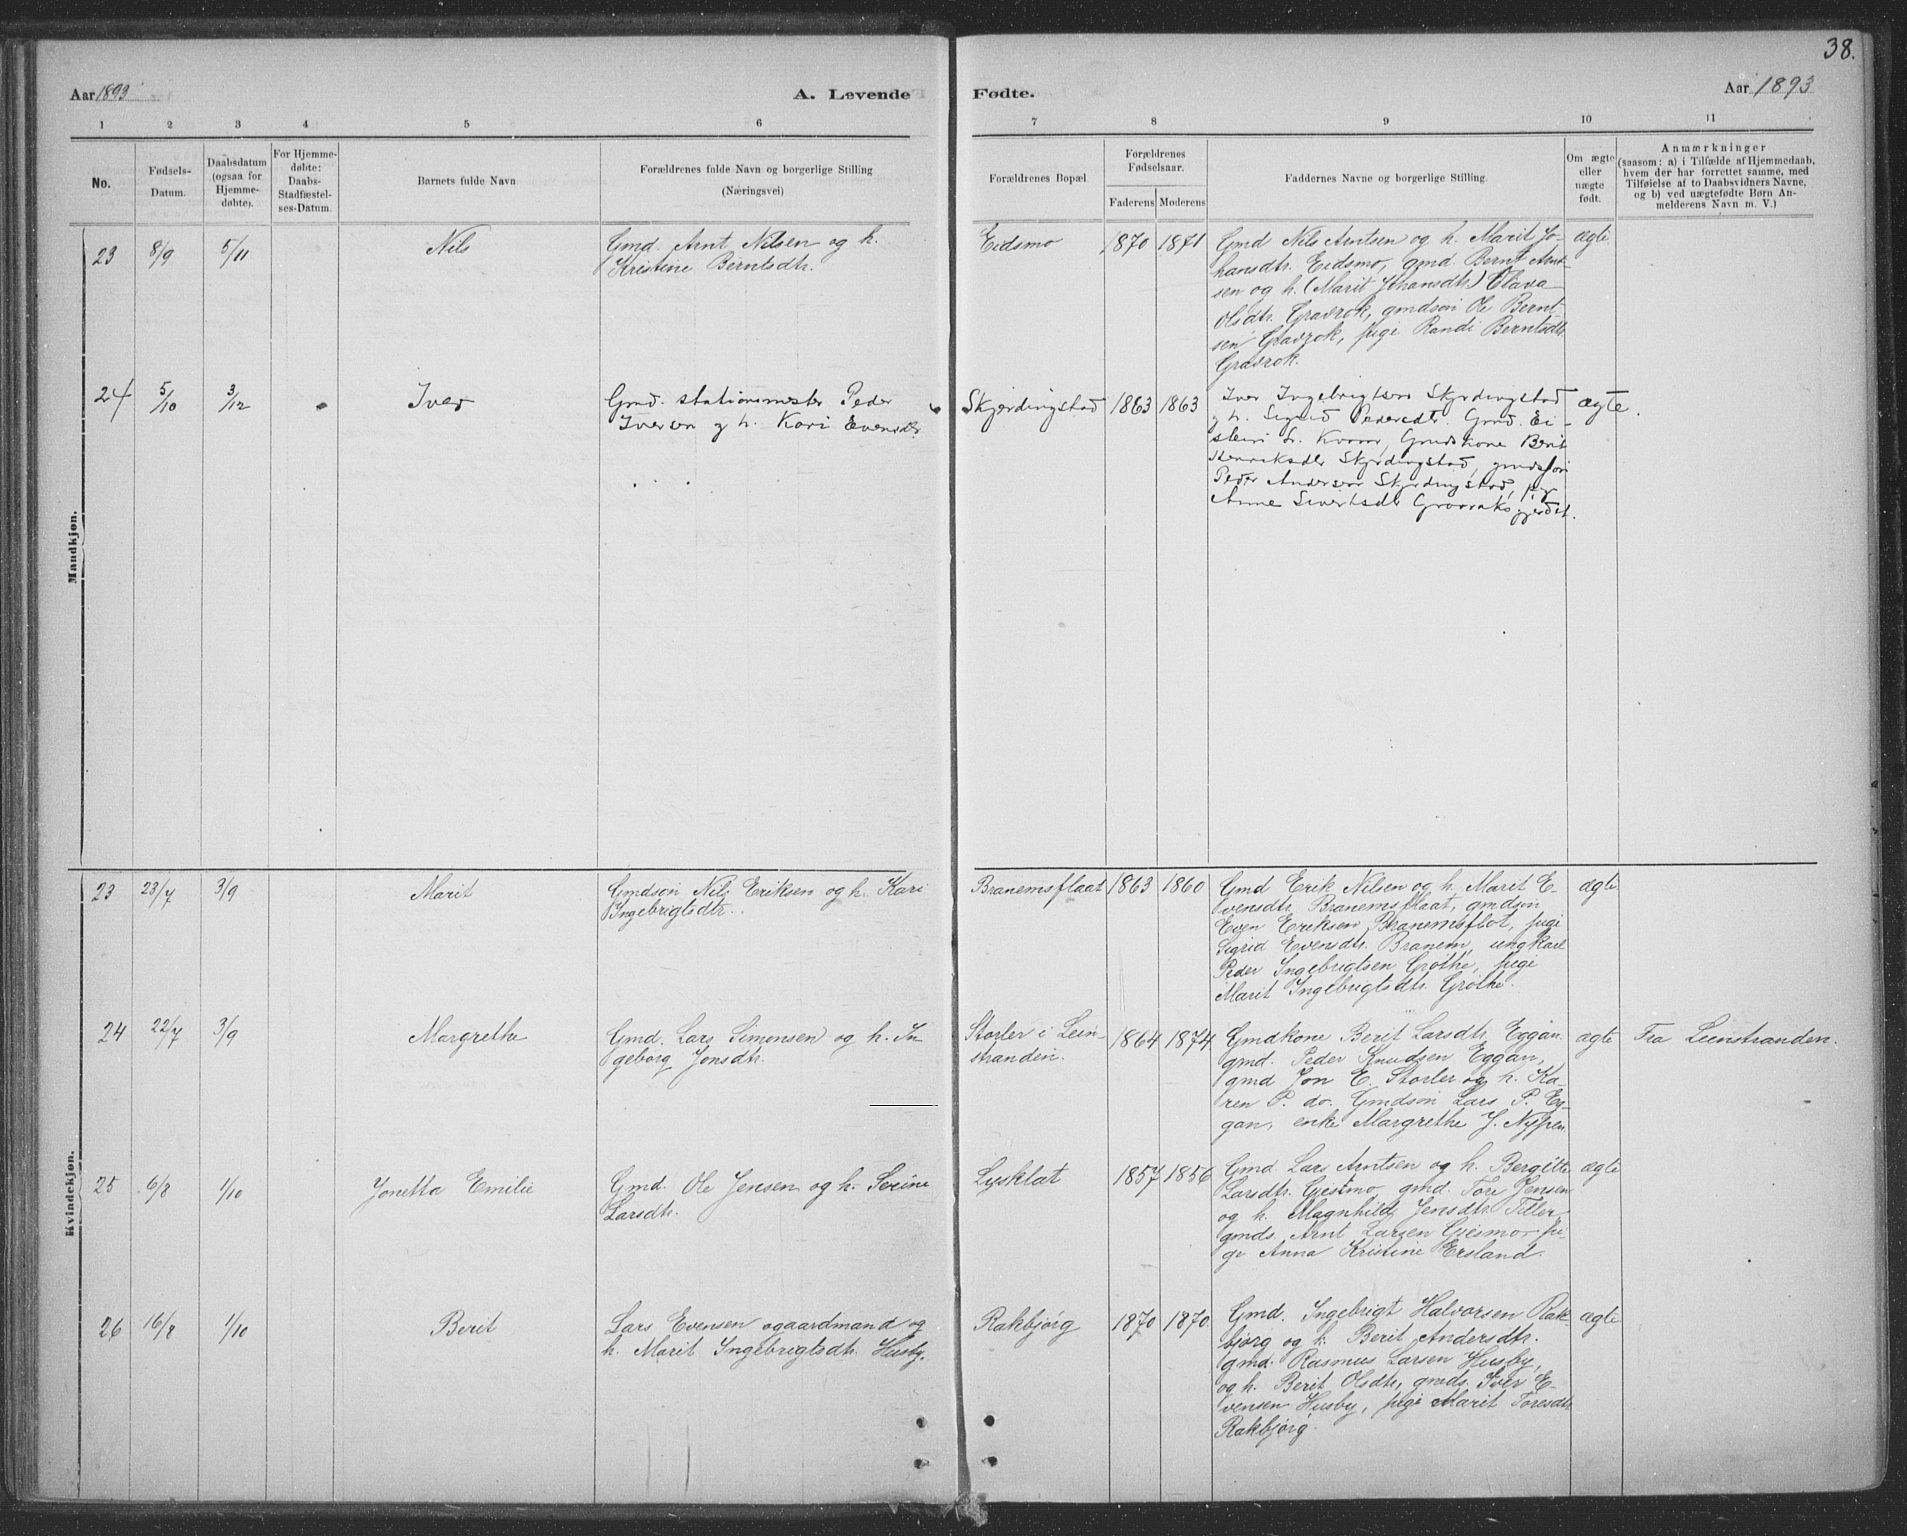 38.
Aar 1893
A. Levende
Fødte.
Aar 1893
1 2 3 4 5 6 7 8 9 10 11
No.
Fødsels-
Datum.
Daabsdatum
(ogsaa for
Hjemme-
døbte).
For Hjemme-
døbte:
Daabs-
Stadfæstel-
ses-Datum.
Barnets fulde Navn
Forældrenes fulde Navn og borgerlige Stilling
(Næringsvei)
Forældrenes Bopæl.
Forældrenes
Fødselsaar.
Faderens Moderens
Faddernes Navne og borgerlige Stilling.
Om ægte
eller
uægte
født.
Anmærkninger
(saasom: a) i Tilfælde af Hjemmedaab,
hvem der har forrettet samme, med
Tilføielse af to Daabsvidners Navne,
og b) ved uægtefødte Børn An-
melderens Navn m. V.)
Mandkjøn.
23 8/9 5/11 Nils
Gmd. Arnt Nilsen og h.
Kristine Berntsdtr.
Eidsmo 1870 1871
Gmd Nils Arntsen og h. Marit Jo-
hansdtr. Eidsmo, gmd Bernt Arnt-
sen og h. (Marit Johansdtr.) Olava
Olsdtr. Gravrok, gmdsøn Ole Bernt-
sen Gravrok, pige Randi Berntsdtr.
Gravrok.
ægte
24 5/10 3/12 Iver
Gmd. stationsmester Peder
Iversen og h. Kari Evensdtr.
Skjerdingstad 1863 1863
Iver Ingebrigtsen Skjerdingstad
og h. Sigrid Pedersdtr. Gmd. Ei-
stein L. Kvam, Gmdskone Berit
Henriksdtr Skjerdingstad, gmdssøn
Peder Andersen Skjerdingstad, pige
Anne Sivertsdtr Gravraksgjerdet.
ægte.
Kvindekjøn.
23 23/7 3/9 Marit
Gmdsøn Nils Eriksen og h. Kari
Ingebrigtsdtr.
Branemsflaat 1863 1860
Gmd Erik Nilsen og h. Marit E-
vensdtr. Branemsflaat, gmdsøn
Even Eriksen Branemsflot, pige
Sigrid Evensdtr. Branem, ungkarl
Peder Ingebrigtsen Grøthe, pige
Marit Ingebrigtsdtr. Grøthe.
ægte
24 22/7 3/9 Margrethe
Gmd. Lars Simonsen og h. In-
geborg Jonsdtr.
Storler i Lein-
stranden. 1864 1874
Gmdkone Berit Larsdtr. Eggan.
gmd. Peder Knudsen Eggan,
gmd Jon E. Storler og h. Ka-
ren P. do. Gmdsøn Lars P. Eg-
gan, enke Margrethe J. Nypen
ægte
Fra Leinstranden.
25 6/8 1/10 Jonetta Emilie
Gmd. Ole Jensen og h. Serine
Larsdtr.
Lysklat 1857 1856
Gmd Lars Arntsen og h. Bergitte
Larsdtr. Gjesmo, gmd. Tore Jensen
og h. Magnhild Jensdtr. Tiller,
gmds. Arnt Larsen Gjesmo, pi-
ge Anna Kristine Ersland.
ægte
26 16/8 1/10 Berit
Lars Evensen ogaardmand og
h. Marit Ingebrigtsdtr. Husby.
Rakbjørg 1870 1870
Gmd. Ingebrigt Halvorsen Rak-
bjørg og h. Berit Andersdtr.
gmd. Rasmus Larsen Husby,
og h. Berit Olsdtr, gmds. Iver E-
vensen Husby, pige Marit Toresdtr.
Rakbjørg.
ægte